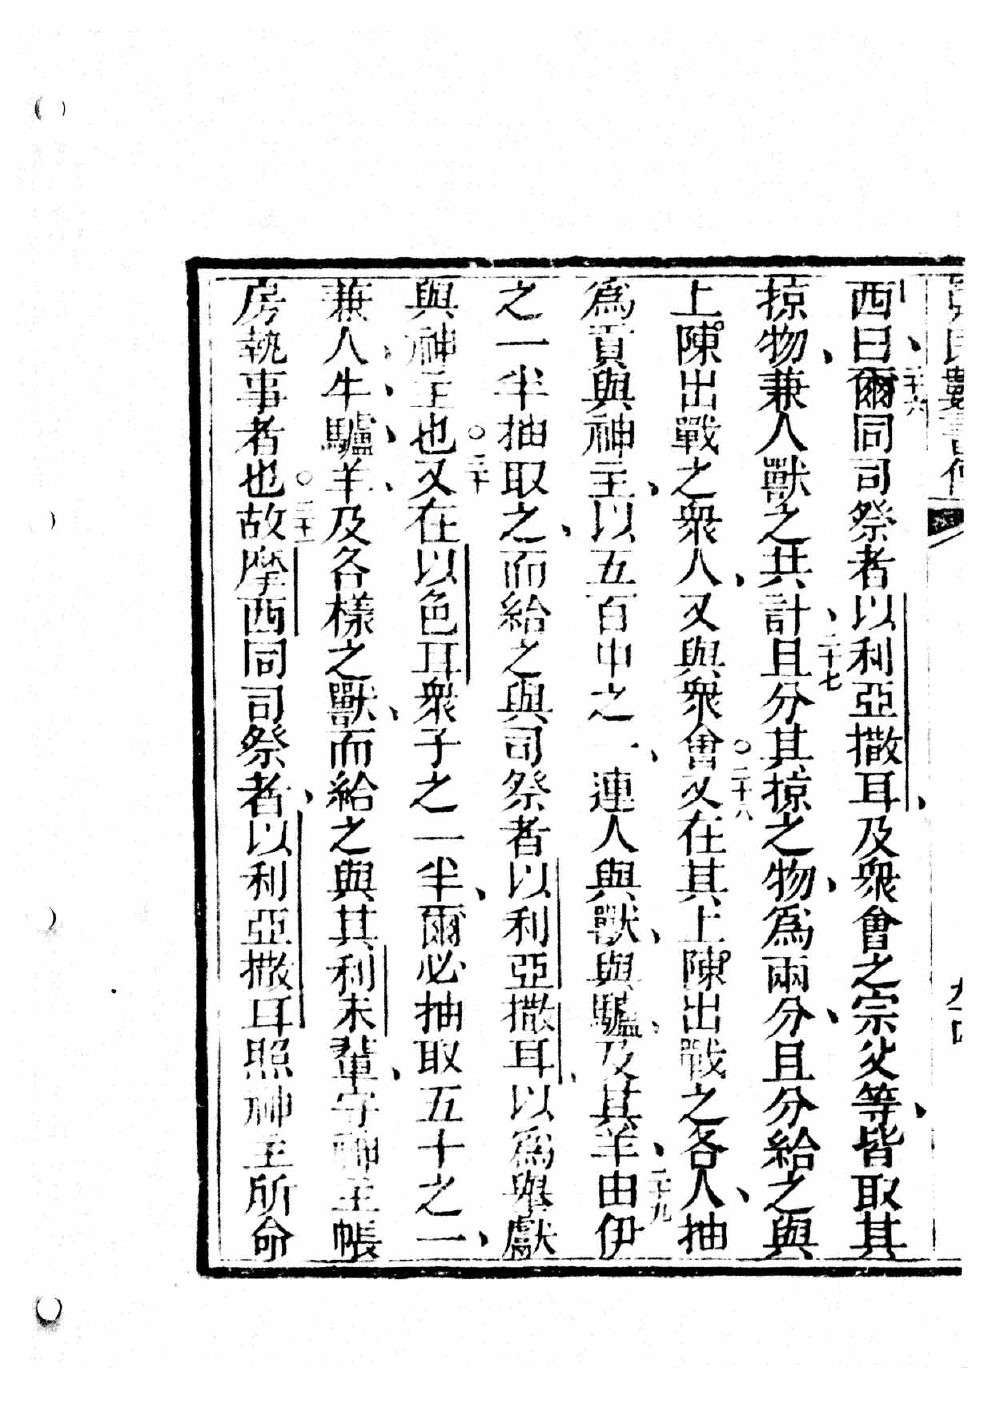 西曰、二十六爾同司祭者以利亞撒耳、及衆會之宗父等、皆取其
掠物、兼人獸之共計、二十七且分其掠之物、爲兩分、且分給之與
上陳出戰之衆人、又與衆會○二十八又在其上陳出戰之各人、抽
爲貢與神主、以五百中之一、連人與獸、與驢、及其羊、二十九由伊
之一半抽取之、而給之與司祭者以利亞撒耳、以爲舉獻
與神主也○三十又在以色耳衆子之一半、爾必抽取五十之一、
兼人、牛、驢、羊、及各樣之獸、而給之與其利未輩、守神主帳
房執事者也○三十一故摩西同司祭者、以利亞撒耳照神主所命